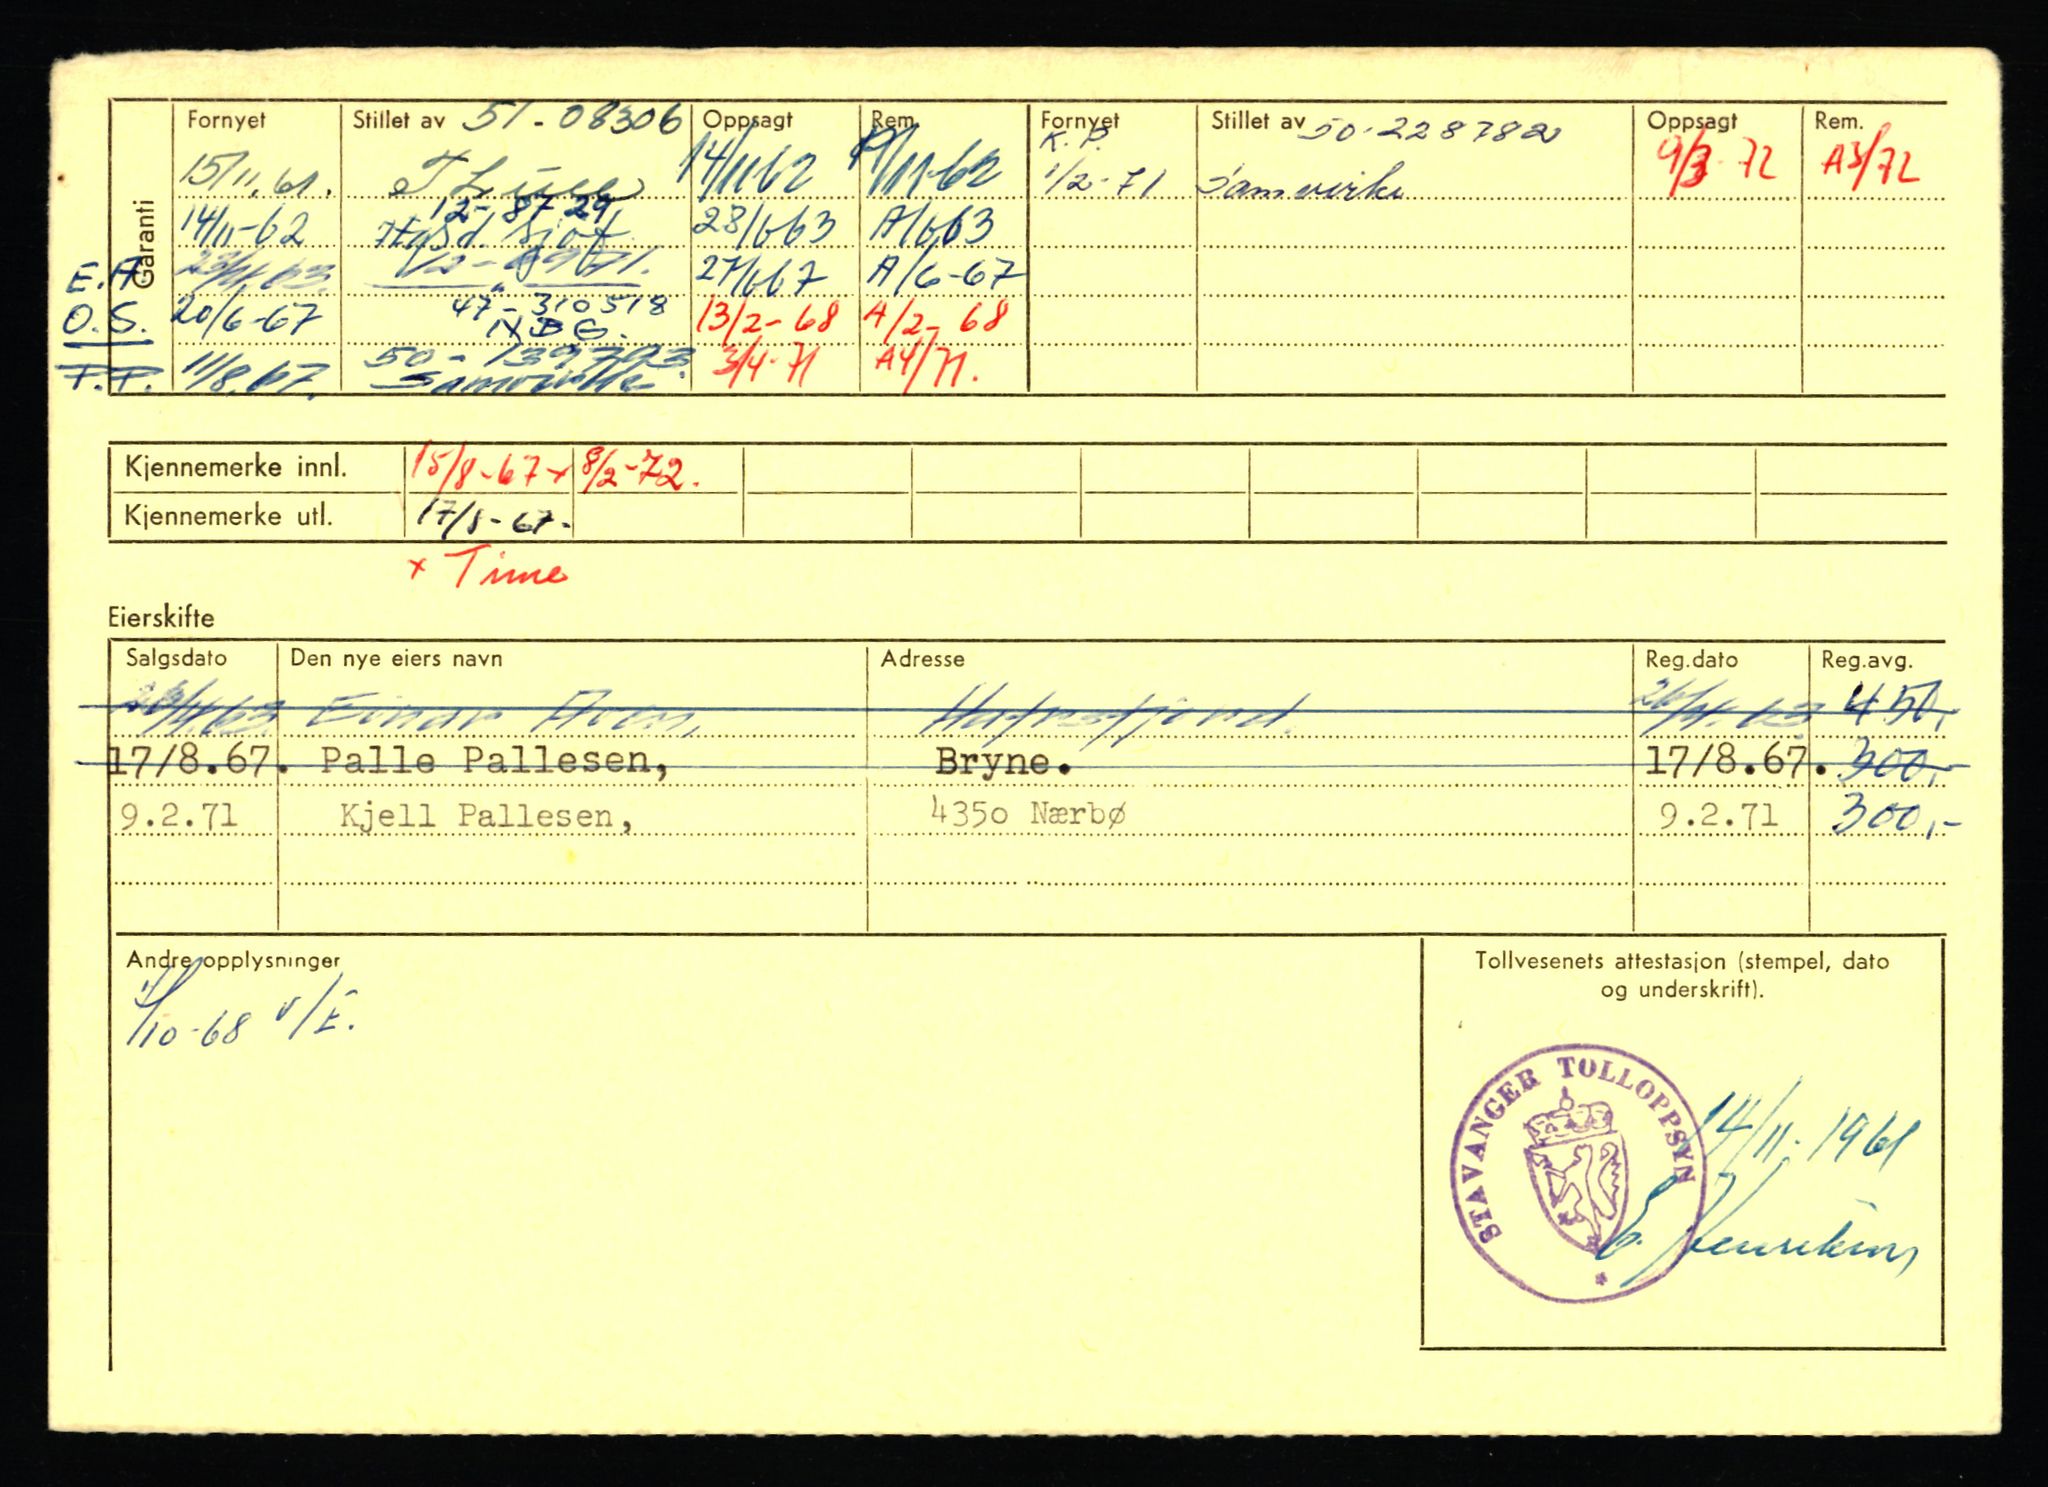 Garanti
Fornyet Stillet av 51-08306 Oppsagt Rem. Fornyet Stillet av 50-2287820 Oppsagt Rem.
K.P.
15/11.61. 14/11 62 11-62 1/2-71 Samvirke 9/3-72 A3/72
12-8729
14/11-62 28/6 63 A/6 63
E.A 27/6 67 A/6-67
47-310518
O.S. 20/6-67 NBG. 13/2-68 A/2-68
50-139793.
P.P. 11/8.67. Samvirke 3/4-71 A4/71.
Kjennemerke innl. 15/8-67 x 8/2-72.
Kjennemerke utl. 17/8-67-
x Time
Eierskifte
Salgsdato Den nye eiers navn Adresse Reg.dato Reg.avg.
Einar Aven, Hafrsfjord. 450,-
17/8.67. Palle Pallesen, Bryne. 17/8.67. 300,-
9.2.71 Kjell Pallesen, 4350 Nærbø 9.2.71 300,-
Andre opplysninger
1/10-68 v/E.
Tollvesenets attestasjon (stempel, dato
og underskrift).
STAVANGER TOLLOPPSYN
14/11-1961